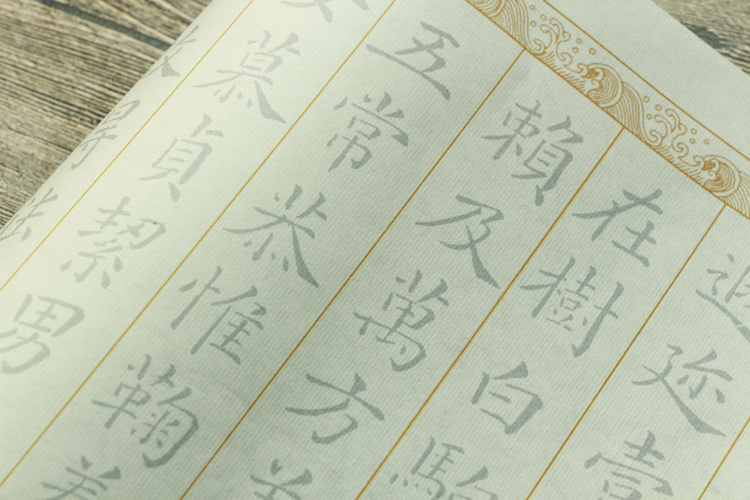 遐迩壹
在樹白駒
賴及萬方蓋
五常恭惟鞠養
女慕貞絜男
改得能